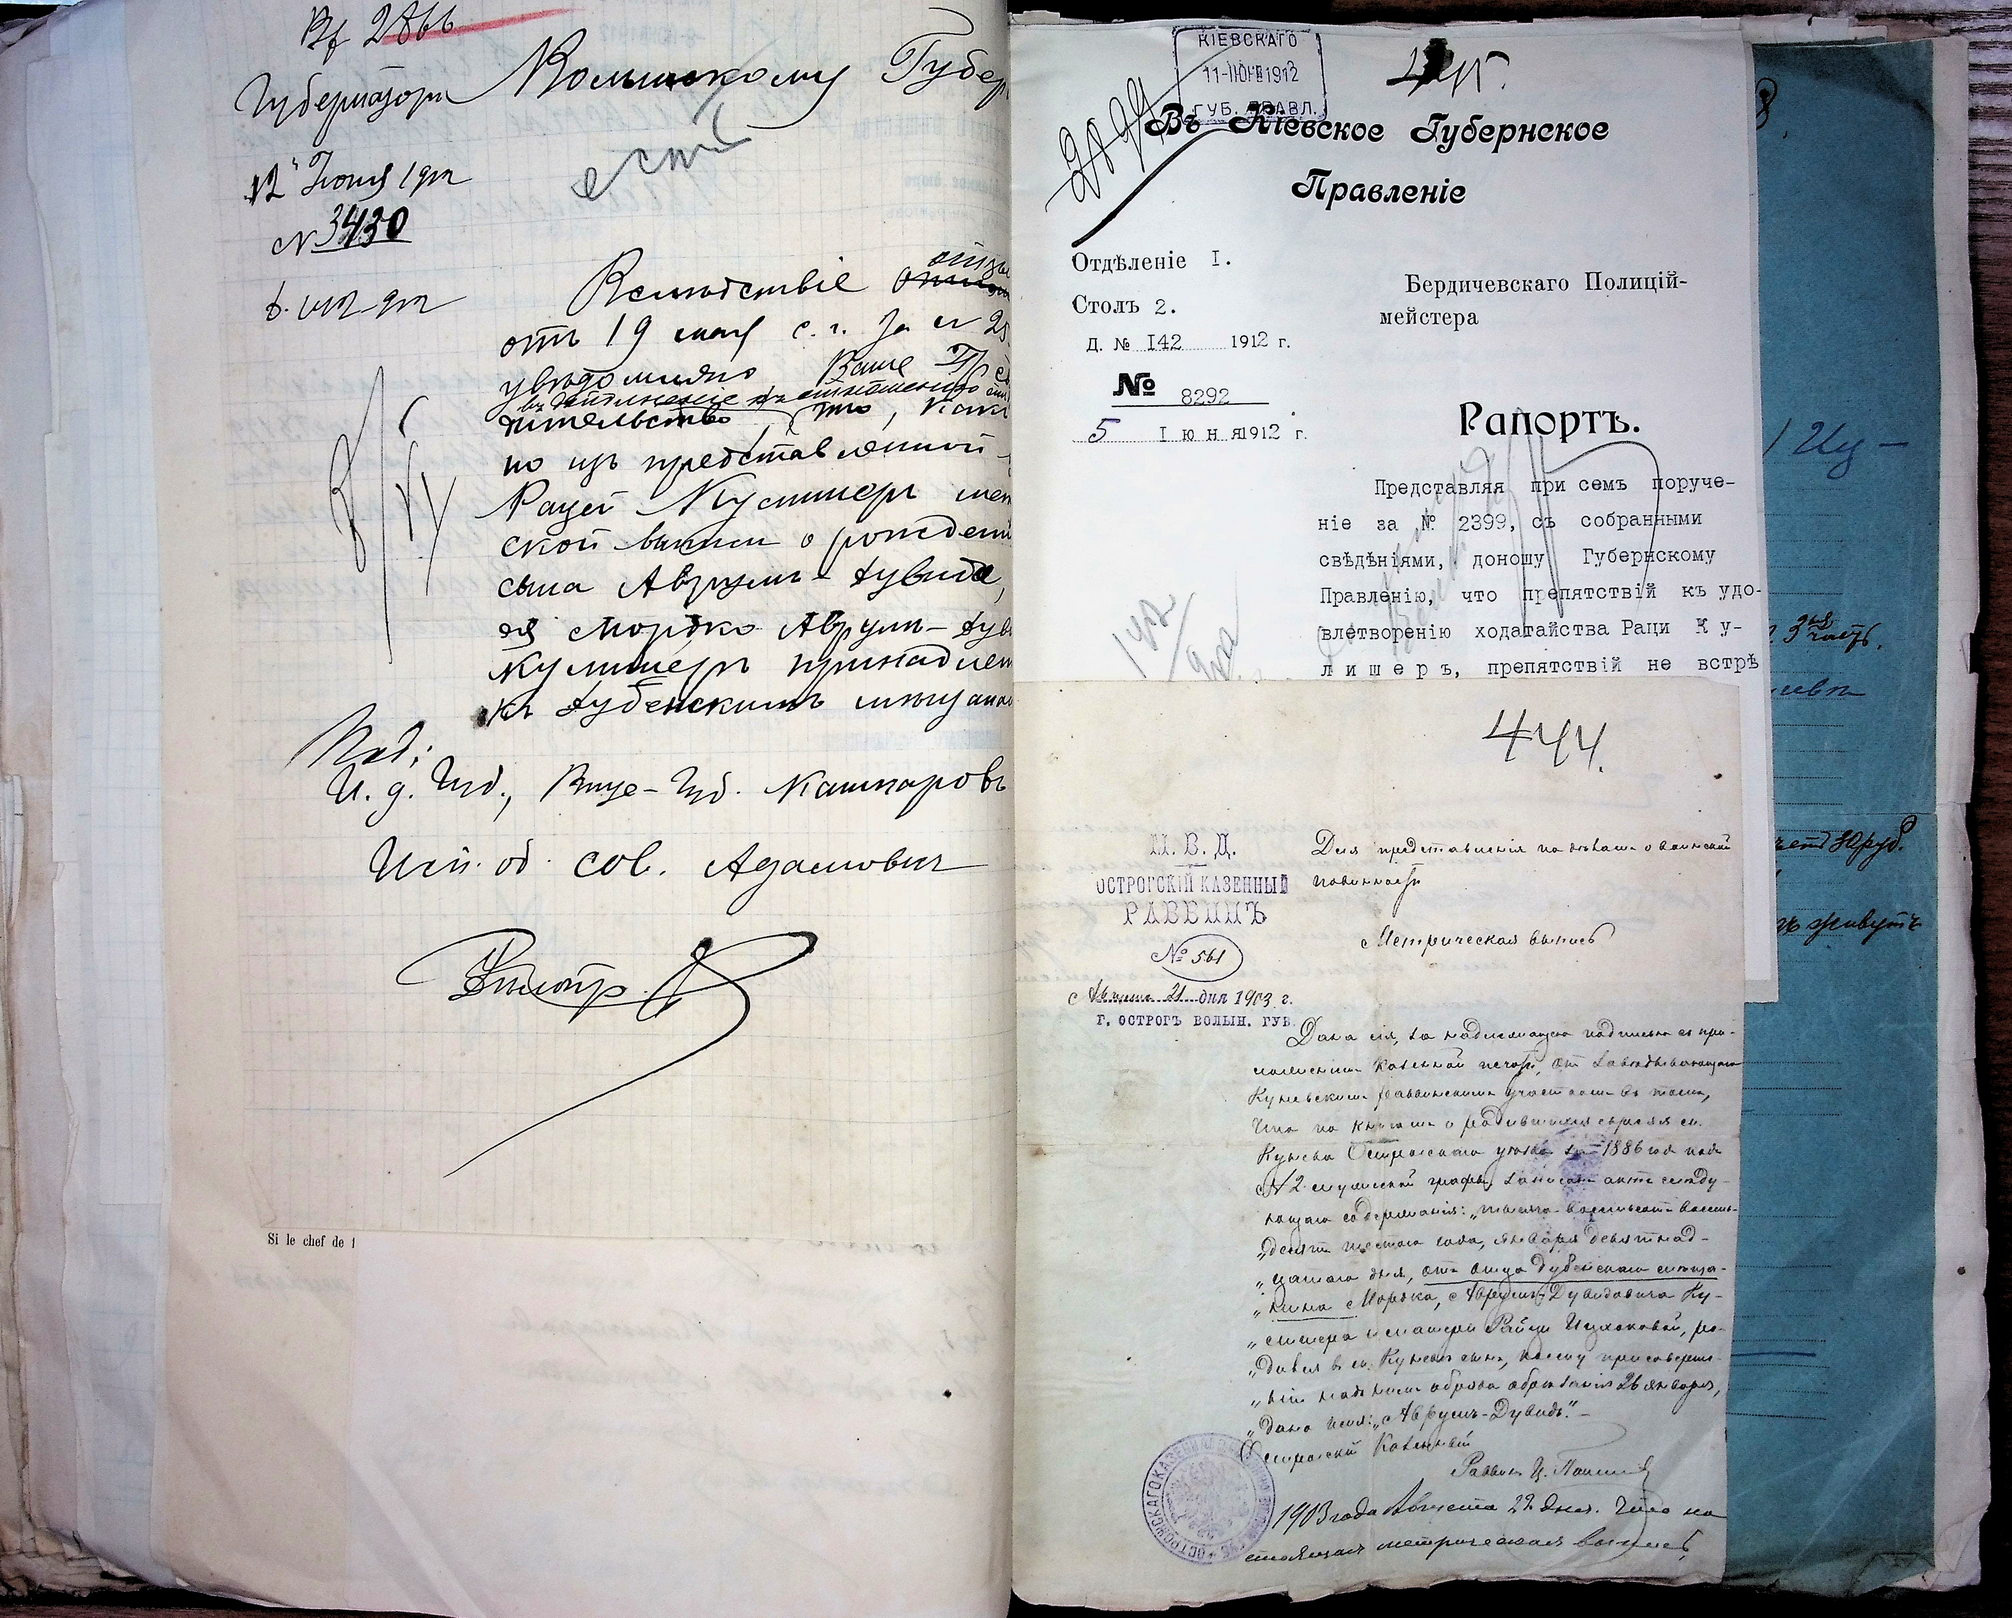 Вх 2866
Губернатора
Волынскому Губер
12 Іюня 1912
№ 3430
есть
Вслѣдствіе
отъ 19 мая с. г. за №
увѣдомляю Ваше
тельство, что, какъ
но изъ представленной
Рацей Кулишеръ мет
ской выписи о рожденіи
сына Аврумъ-Дувида,
ея Мордко Аврум-Дув
Кулишеръ принадлеж
къ Дубенскимъ мѣщана
Под:
И. д. Губ., Вице-Губ. Кашкаровъ
Исп. об. сов. Адамович
Si le chef de l
КІЕВСКАГО
11-ІЮН 1912
ГУБ. ПРАВЛ.
Въ Кіевское Губернское
Правленіе
Отдѣленіе I.
Столъ 2.
Д. № I42 1912 г.
№ 8292
5 Іюня 1912 г.
Бердичевскаго Полицій-
мейстера
Рапортъ.
Представляя при семъ поруче-
ніе за № 2399, съ собранными
свѣдѣніями, доношу Губернскому
Правленію, что препятствій къ удо-
влетворенію ходатайства Раци Ку-
лишеръ, препятствій не встрѣ
444.
М. В. Д.
ОСТРОГСКІЙ КАЗЕННЫЙ
РАВВИНЪ
№ 561
Августа 21 дня 1903 г.
Г. ОСТРОГЪ ВОЛЫН. ГУБ.
Для представленія по дѣламъ о воинской
повинности
Метрическая выпись
Дана сія, за надлежащею подписью съ при-
ложеніемъ казенной печати, отъ завѣдывающаго
Куневскимъ раввинскимъ участкомъ въ томъ,
что по книгамъ о родившихся евреяхъ м.
Кунева Острожскаго уѣзда за 1886 годъ подъ
№ 2 мужской графы, записанъ актъ слѣду-
ющаго содержанія: „тысяча восемьсотъ восемь-
„десятъ шестого года, января девятнад-
„цатаго дня, отъ отца Дубенскаго мѣща-
„нина Мордка, Аврумъ-Дувидовича Ку-
„лишера и матери Райци Ицковой, ро-
„дился въ м. Куневѣ сынъ, коему при соверше-
„ніи надъ нимъ обряда обрѣзанія 26 января,
„дано имя: „Аврумъ-Дувидъ“.-
Острожскій Казенный
Раввинъ
1903 года Августа 22 дня. Что на
стоящая метрическая выпись,
живутъ